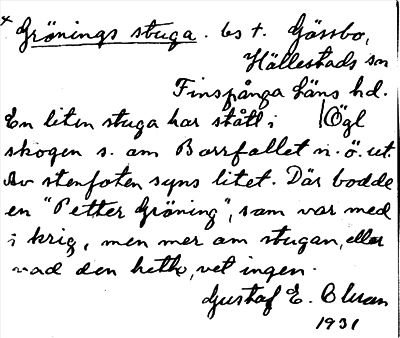 x Grönings stuga. bs t. Gössbo,
Hällestads sn
Finspånga läns hd.
En liten stuga har stått i Ögl
skogen s. om Borrfallet n. ö. ut.
Av stenfoten syns litet. Där bodde
en "Petter Gröning", som var med
i krig, men mer om stugan, eller
vad den hette, vet ingen.
Gustaf E.
1931